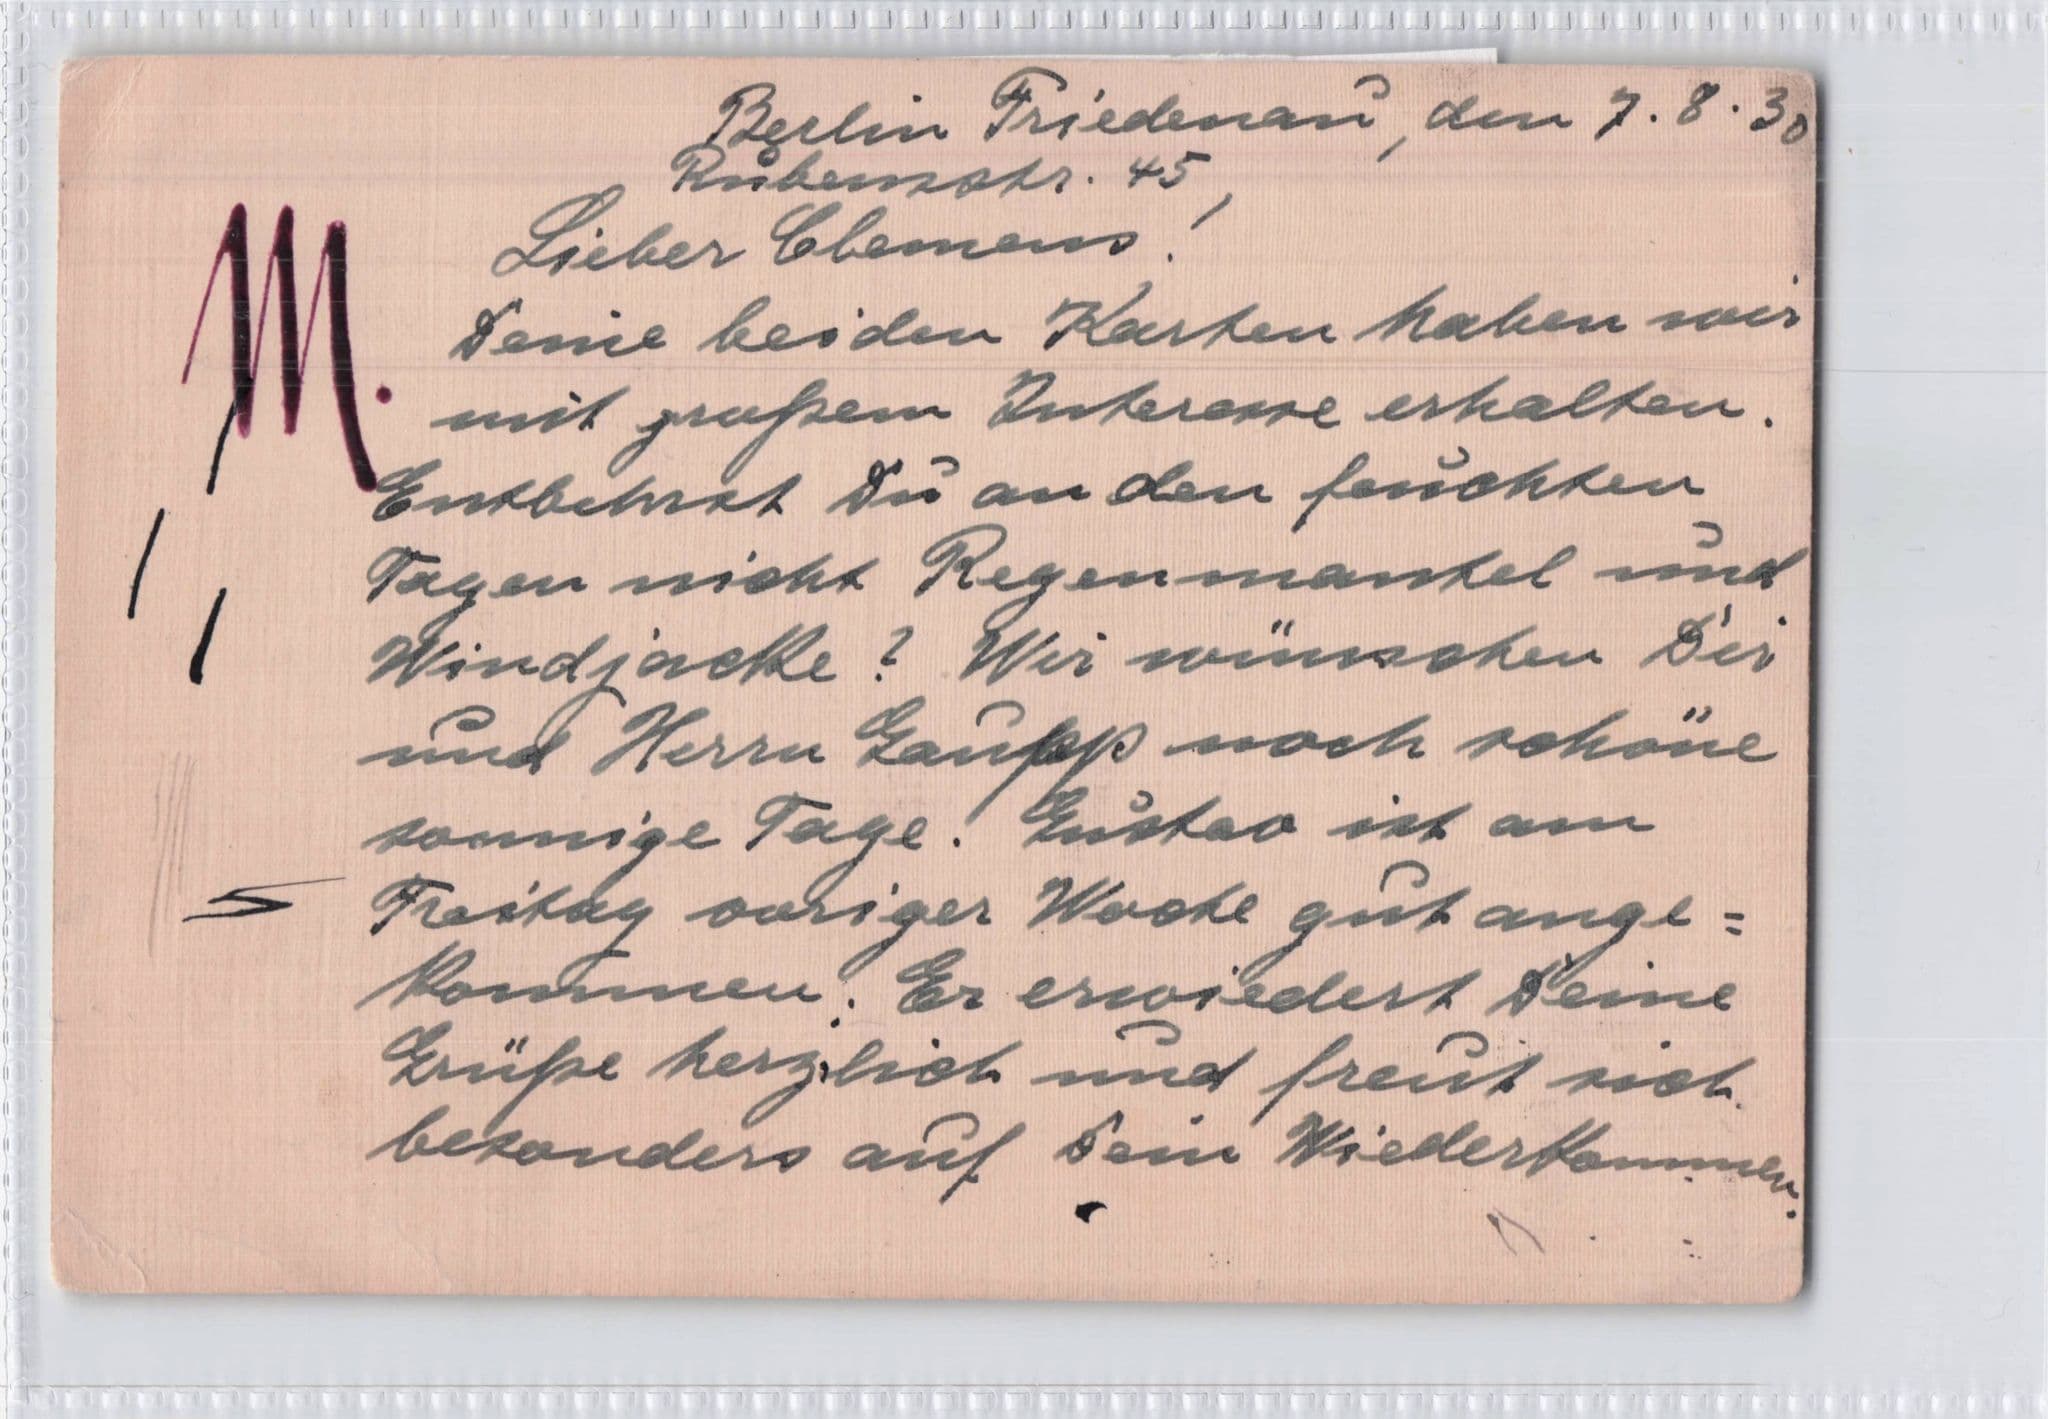 Berlin Friedenau, den 7.8.30
Rubensstr. 45,
Lieber Clemens!
M.
Deine beiden Karten haben wir
mit großem Interesse erhalten.
Entbehrst Du an den feuchten
Tagen nicht Regenmantel und
Windjacke? Wir wünschen Dir
und Herrn Gaupp noch schöne
sonnige Tage. Gustav ist am
Freitag voriger Woche gut ange=
kommen. Er erwiedert Deine
Grüße herzlich und freut sich
besonders auf Dein Wiederkommen.